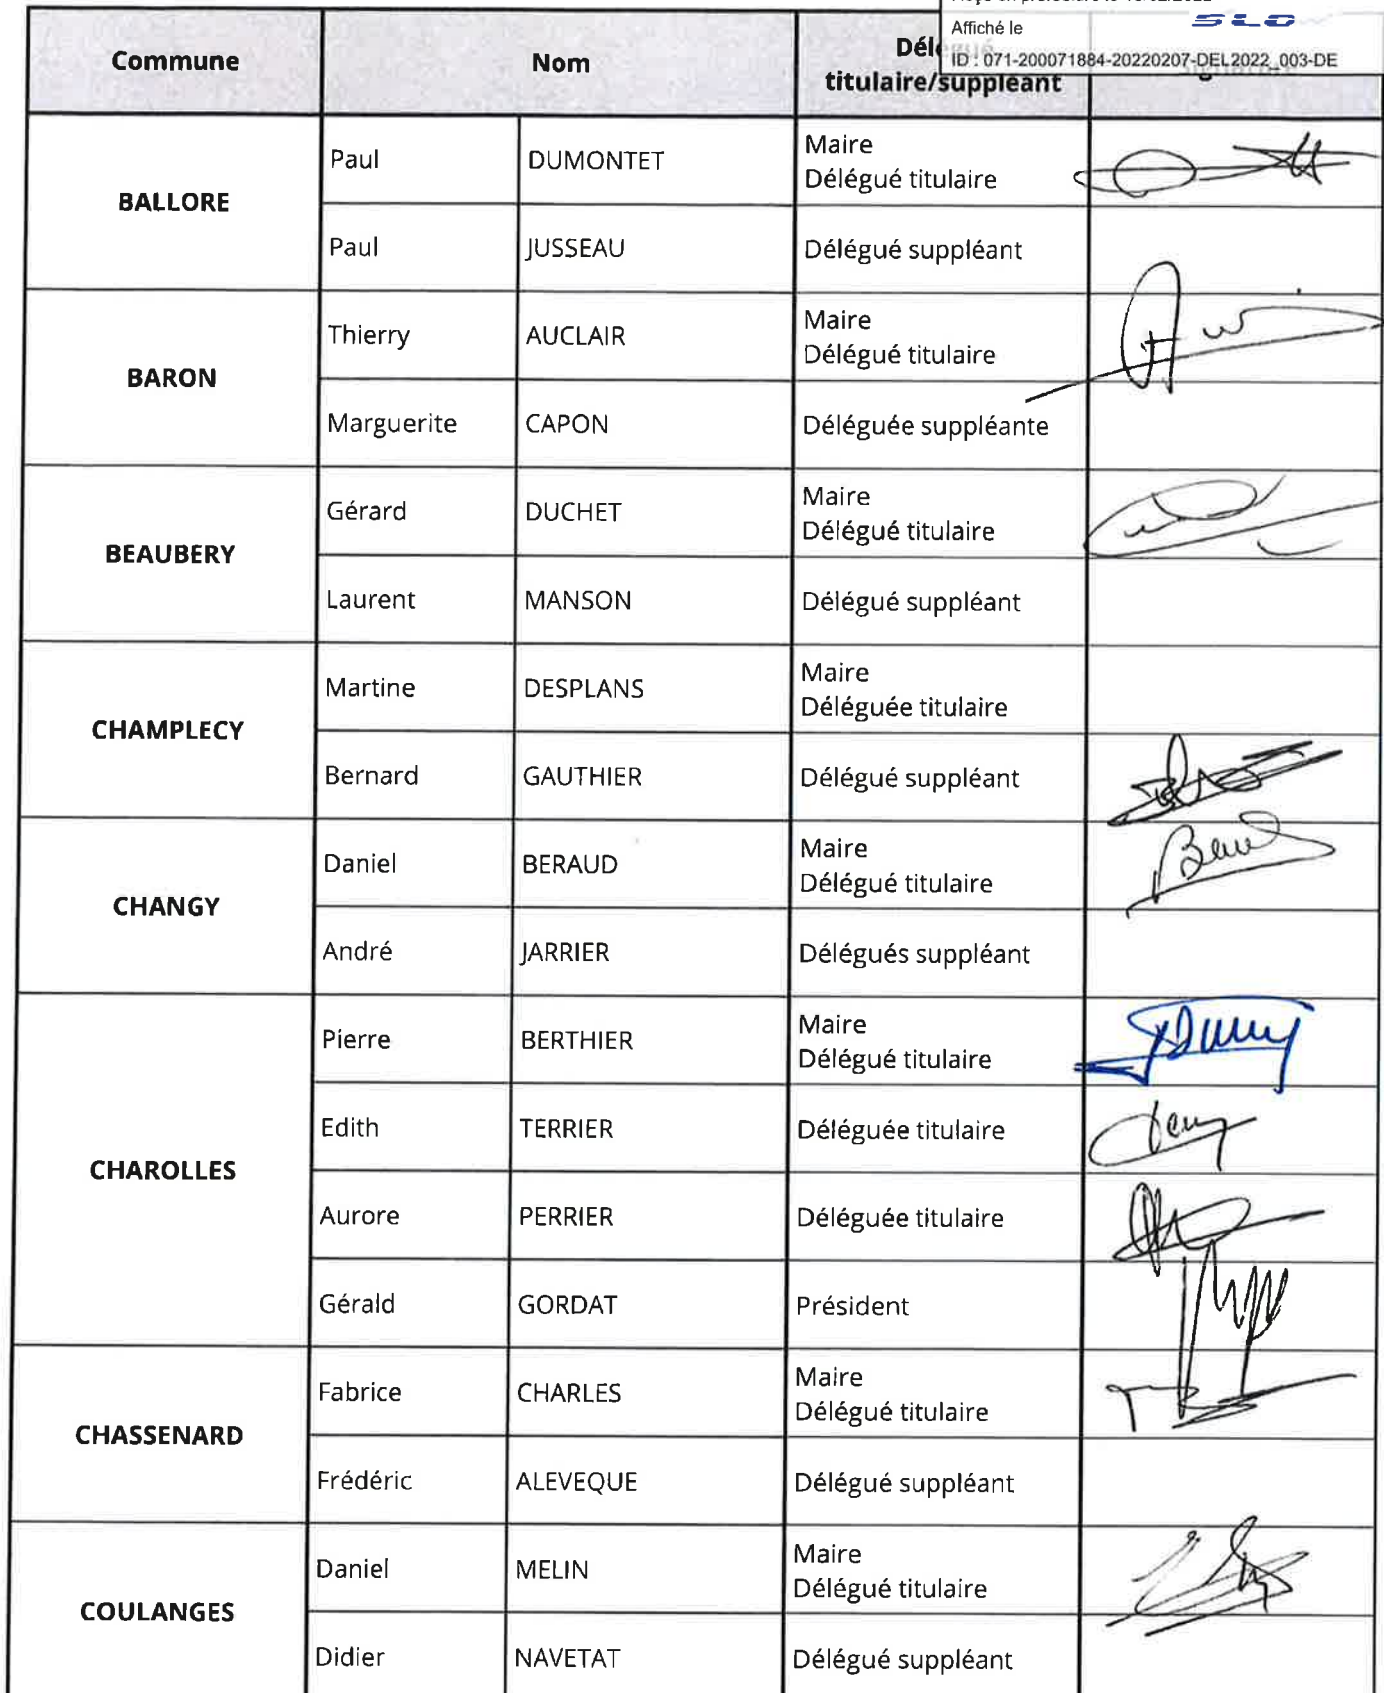 Affiché le
SLO
ID : 071-200071884-20220207-DEL2022_003-DE
Commune Nom Délégué titulaire/suppléant
BALLORE
Paul DUMONTET Maire
Délégué titulaire
Paul JUSSEAU Délégué suppléant
BARON
Thierry AUCLAIR Maire
Délégué titulaire
Marguerite CAPON Déléguée suppléante
BEAUBERY
Gérard DUCHET Maire
Délégué titulaire
Laurent MANSON Délégué suppléant
CHAMPLECY
Martine DESPLANS Maire
Déléguée titulaire
Bernard GAUTHIER Délégué suppléant
CHANGY
Daniel BERAUD Maire
Délégué titulaire
André JARRIER Délégués suppléant
CHAROLLES
Pierre BERTHIER Maire
Délégué titulaire
Edith TERRIER Déléguée titulaire
Aurore PERRIER Déléguée titulaire
Gérald GORDAT Président
CHASSENARD
Fabrice CHARLES Maire
Délégué titulaire
Frédéric ALEVEQUE Délégué suppléant
COULANGES
Daniel MELIN Maire
Délégué titulaire
Didier NAVETAT Délégué suppléant